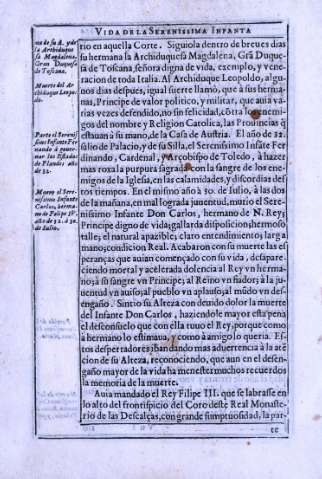 VIDA DE LA SERENISSIMA INFANTA
rio en aquella Corte. Siguiola dentro de breues dias
su hermana la Archiduquesa Magdalena, Grã Duque
sa de Toscana, señora digna de vida, exemplo, y vene-
racion de toda Italia. Al Archiduque Leopoldo, algu-
nos dias despues, igual suerte llamò, que a sus herma-
nas, Principe de valor politico, y militar, que auia va-
rias vezes defendido, no sin felicidad, cõtra los enemi-
gos del nombre y Religion Catolica, las Prouincias q̃
estauã a su mano, de la Casa de Austria. El año de 32.
salio de Palacio, y de su Silla, el Serenissimo Infãte Fer
dinando, Cardenal, y Arçobispo de Toledo, à hazer
mas roxa la purpura sagrada con la sangre de los ene-
migos de la Iglesia, en las calamidades, y discordias des
tos tiempos. En el mismo año à 30. de Iulio, à las dos
de la mañana, en mal lograda juuentud, murio el Sere-
nissimo Infante Don Carlos, hermano de N. Rey;
Principe digno de vida; gallarda disposicion; hermoso
talle; el natural apazible; claro entendimiento; larga
mano; condicion Real. Acabaron con su muerte las es
peranças que auian començado con su vida, desapare-
ciendo mortal y acelerada dolencia al Rey vn herma-
no; à su sangre vn Principe; al Reino vn fiador; à la ju-
uentud vn auiso; al pueblo vn aplauso; al mũdo vn des-
engaño. Sintio su Alteza con deuido dolor la muerte
del Infante Don Carlos, haziendole mayor esta pena
el desconsuelo que con ella tuuo el Rey, porque como
a hermano lo estimaua, y como à amigo lo queria. Es
tos despertadores iban dando mas aduertencia à la atẽ
cion de su Alteza, reconociendo, que aun en el desen-
gaño mayor de la vida ha menester muchos recuerdos
la memoria de la muerte.
Auia mandado el Rey Filipe III. que se labrasse en
lo alto del frontispicio del Coro deste Real Monaste-
rio de las Descalças, con grande sumptuosidad, la par-
te
ma de su A. y de
la Archiduque
sa Magdalena,
Gran Duquesa
de Toscana.
Muerte del Ar-
chiduque Leopol
do.
Parte el Serenis-
simo Infante Fer
nando à gouer-
nar los Estados
de Flandes año
de 32.
Murio el Sere-
nissimo Infante
Carlos, herma-
no de Felipe IV.
año de 32. à 30.
de Iulio.